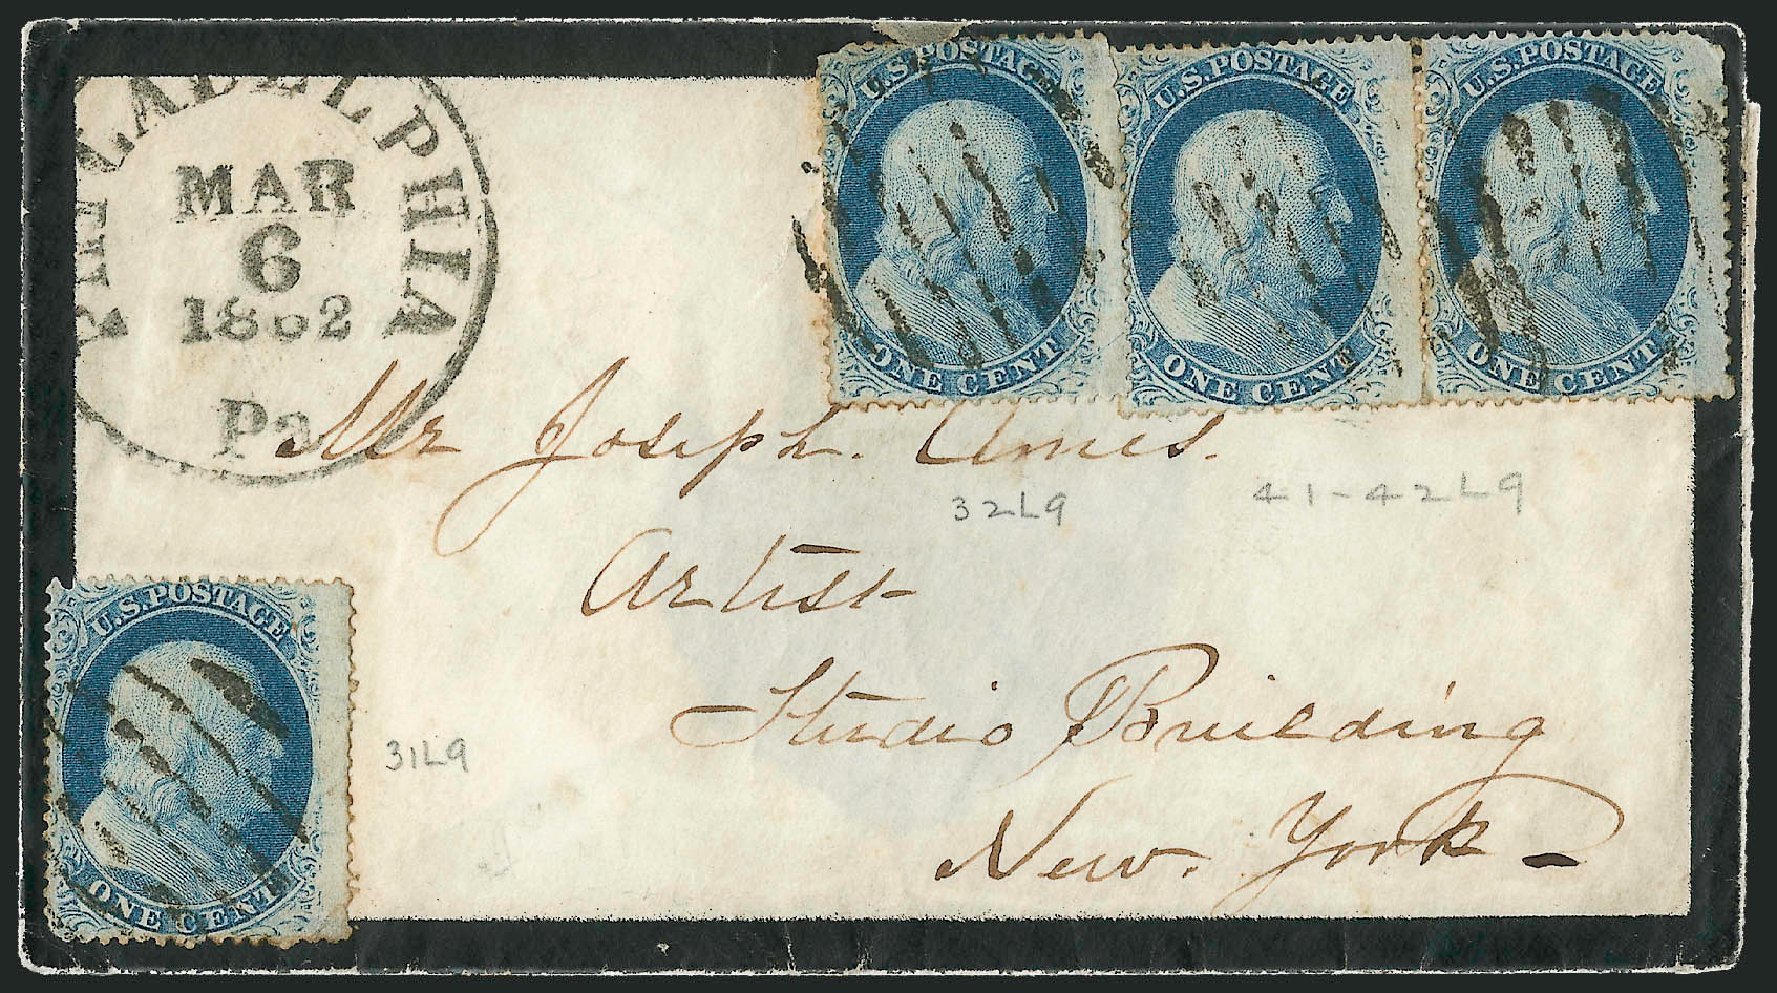 PHILADELPHIA
MAR
6
1862
Pa
U.S. POSTAGE
ONE CENT
U.S. POSTAGE
ONE CENT
U.S. POSTAGE
ONE CENT
Mr Joseph. Ames.
32L9
41-42L9
Artist
Studio Building
New. York
U.S. POSTAGE
ONE CENT
31L9